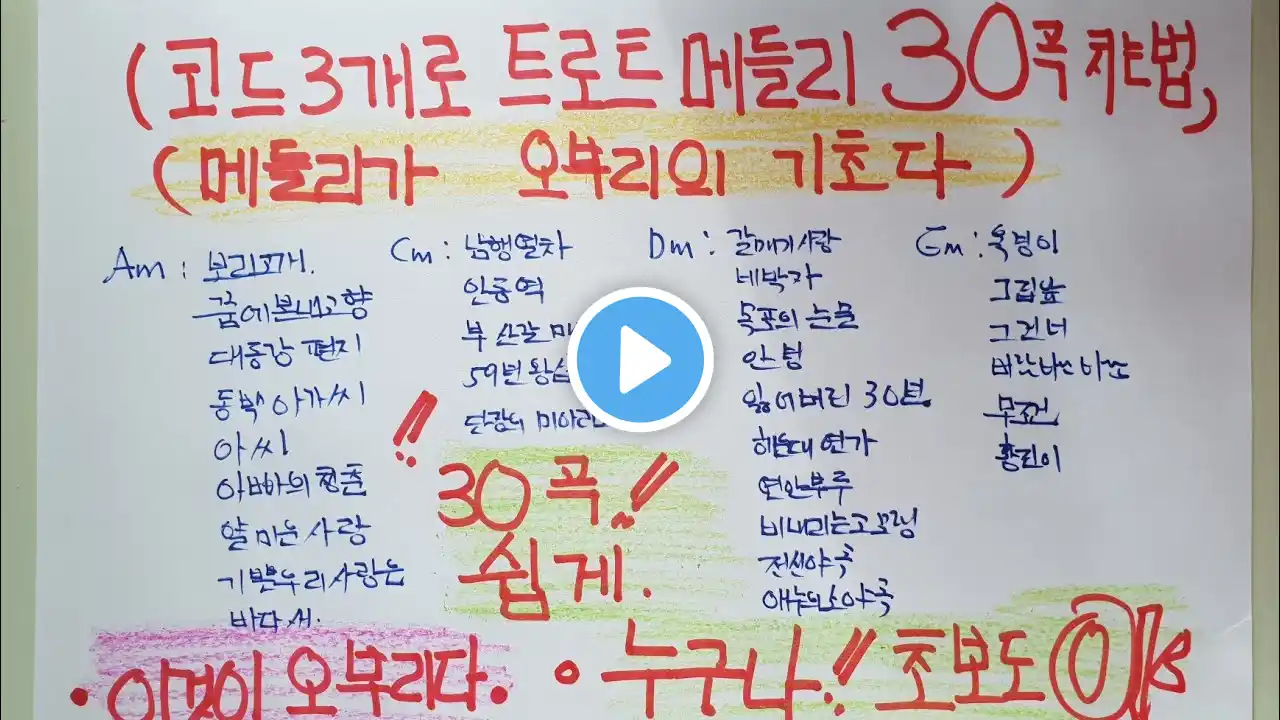 (코드3개로 트로트 메들리 30곡 캬법,
(메들리가 오부리의 기초다)
Am: 보리고개.
꿈에본내고향
대동강 편지
동백아가씨
아씨
아빠의청춘
얄미운 사랑
기쁜우리사랑은
바다새.
Cm: 남행열차
안동역
부산갈매
59번왕십
단장의 미아리
Dm: 갈매기사랑
네박자
목포의 눈물
안녕
잃어버린 30년
해운대 연가
연안부두
비내리는고모령
전선야곡
애수의소야곡
Em: 옥경이
그집앞
그건너
무조건
황진이
30곡!!
쉽게.
• 이것이 오부리다.
• 누구나!! 초보도 OK